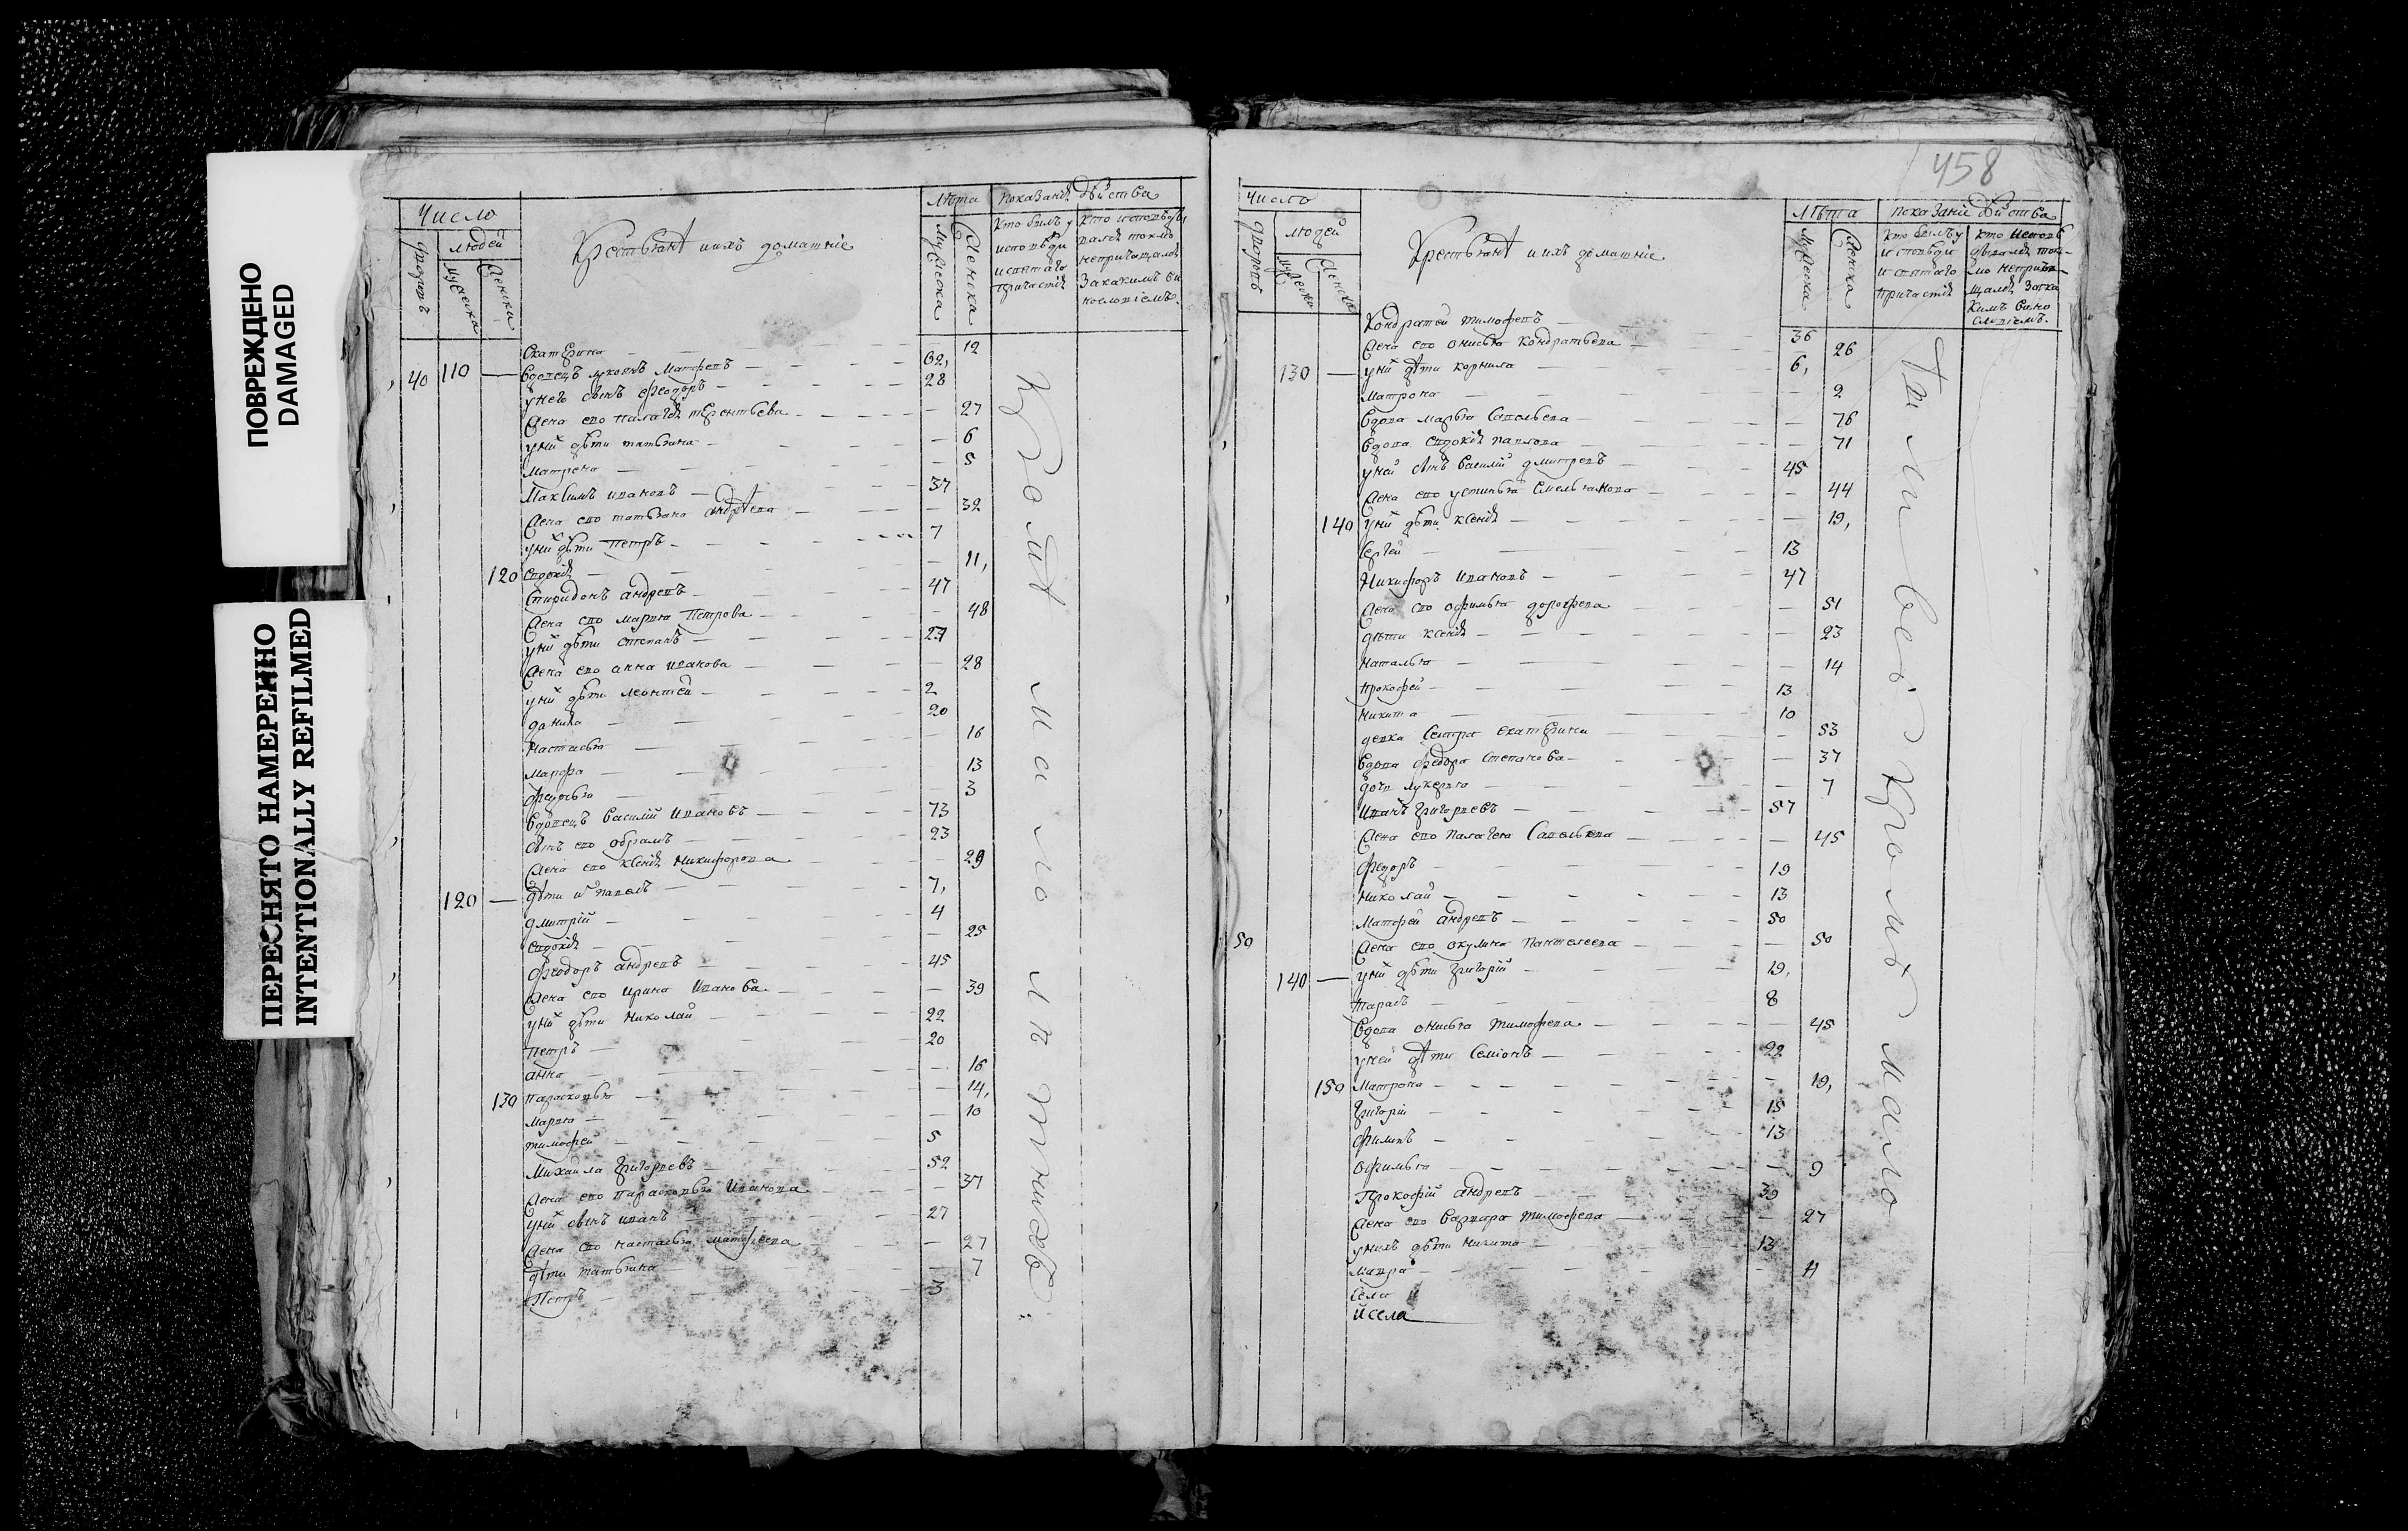 ПОВРЕЖДЕНО
DAMAGED
ПЕРЕСНЯТО НАМЕРЕННО
INTENTIONALLY REFILMED
Число
людей
дворовъ
мужеска
женска
Крестьянѣ и ихъ домашніе
Лѣта
мужеска
женска
показаніе дѣйства
кто былъ у исповѣди и святаго причастія
Екатерина 12
40 110 вдовецъ лукоянъ Матфеевъ 62,
у него сынъ феодоръ 28
жена ево палагея терентьева 27
у них дѣти татьяна 6
матрена 5
Максимъ ивановъ 37
жена ево татьяна андрѣева 32
у них дѣти петръ 7
120 евдокія 11,
Спиридонъ андреевъ 47
жена ево марья Петрова 48
у них дѣти степанъ 27
жена ево анна иванова 28
у них дѣти леонтей 2
данила 20
настасья 16
марфа 13
федосья 3
вдовецъ василій ивановъ 73
сынъ ево обрамъ 23
жена ево ксенія никифорова 29
120 дѣти их павелъ 7,
дмитрій 4
евдокія 25
феодоръ андреевъ 45
жена ево ирина иванова 39
у них дѣти николай 22
петръ 20
анна 16
130 парасковья 14,
марья 10
тимофей 5
Михаила григорьевъ 52
жена ево парасковья иванова 37
у них сынъ иванъ 27
жена ево настасья матфѣева 27
дѣти татьяна 7
Петръ 3
458
Число
людей
дворовъ
мужеска
женска
Крестьянѣ и ихъ домашніе
Лѣта
мужеска
женска
показаніе дѣйства
кто былъ у исповѣди и святаго причастія
Кондратей тимофеевъ 36
жена ево онисья кондратьева 26
130 у них дѣти корнила 6,
матрона 2
вдова марья савельева 76
вдова евдокія павлова 71
у ней сынъ василий дмитревъ 45
жена ево устинья емельянова 44
140 у них дѣти ксенія 19,
сергей 13
Никифоръ ивановъ 47
жена ево офимья дорофеева 51
дѣти ксенія 23
наталья 14
прокофей 13
никита 10
девка сестра екатерина 53
вдова федора степанова 37
дочь лукерья 7
Иванъ григорьевъ 57
жена ево палагея савельева 45
федоръ 19
николай 13
Матфей андреевъ 50
50 жена ево окулина пантелеева 50
140 у них дѣти григорій 19,
тарасъ 8
вдова онисья тимофеева 45
у ней дѣти семіонъ 22
150 матрона 19,
григорій 15
филипъ 13
офимья 9
Прокофій андреевъ 39
жена ево варвара тимофеева 27
у нихъ дѣти никита 13
мавра 11
села
й села